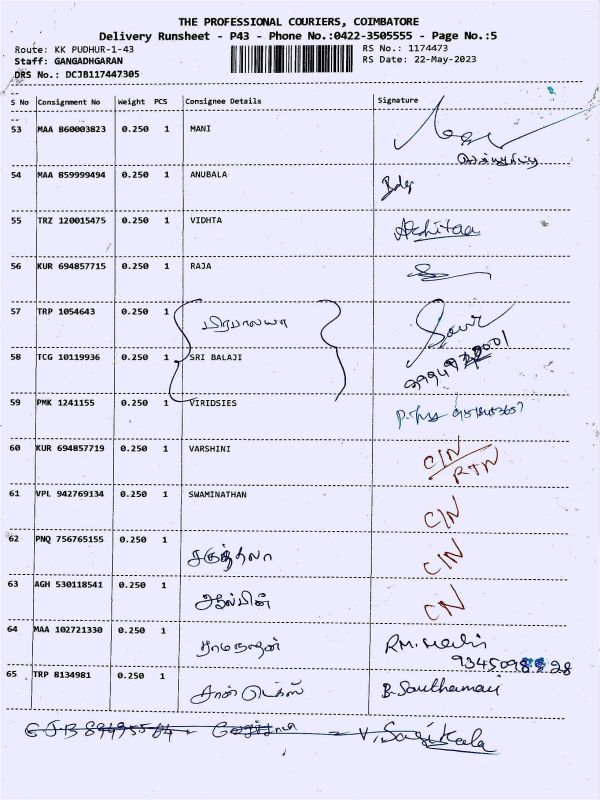 THE PROFESSIONAL COURIERS, COIMBATORE
Delivery Runsheet - P43 - Phone No.:0422-3505555 - Page No.:5
Route: KK PUDHUR-1-43 RS No.: 1174473
Staff: GANGADHGARAN RS Date: 22-May-2023
DRS No.: DCJB117447305
S No Consignment No Weight PCS Consignee Details Signature
53 MAA 860003823 0.250 1 MANI
54 MAA 859999494 0.250 1 ANUBALA
55 TRZ 120015475 0.250 1 VIDHTA Akshitaa
56 KUR 694857715 0.250 1 RAJA
57 TRP 1054643 0.250 1
58 TCG 10119936 0.250 1 SRI BALAJI
59 PMK 1241155 0.250 1 VIRIDSIES
60 KUR 694857719 0.250 1 VARSHINI C/N
RTN
61 VPL 942769134 0.250 1 SWAMINATHAN C/N
62 PNQ 756765155 0.250 1 சகுந்தலா C/N
63 AGH 530118541 0.250 1 C/N
64 MAA 102721330 0.250 1 ராமநாதன்
65 TRP 8134981 0.250 1 B. Santhamani
V. Sasikala